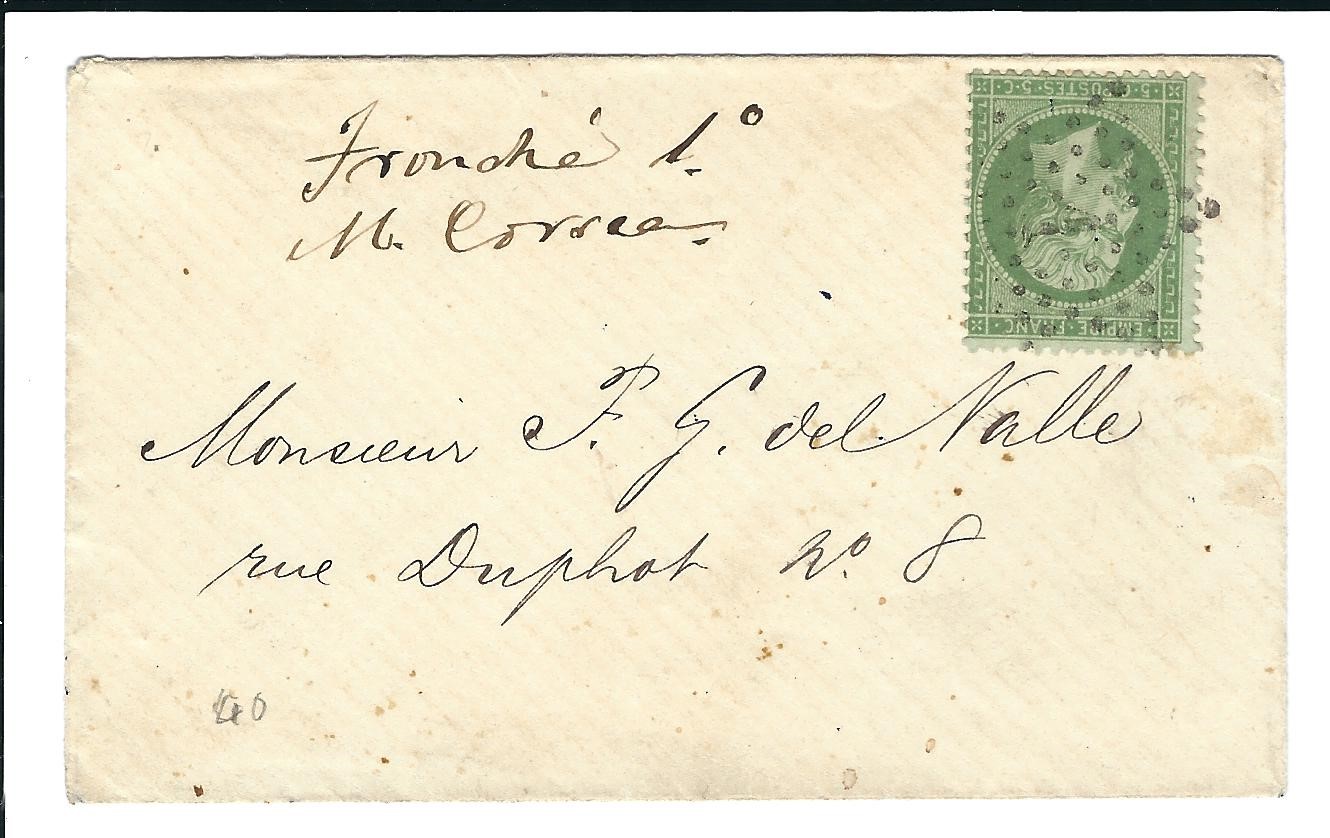 Franché 1.º
M. Correa
5 · C · POSTES · 5 · C ·
EMPIRE · FRANC
Monsieur F. G. del Valle
rue Duphot Nº. 8
40